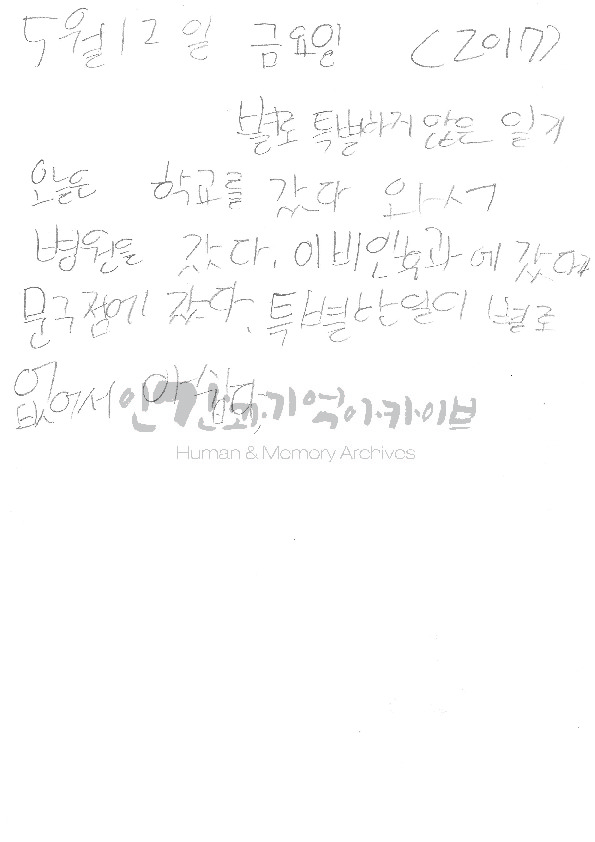 5월 12일 금요일 (2017)
별로 특별하지 않은 일기
오늘은 학교를 갔다 와서
병원을 갔다. 이비인후과에 갔다
문구점에 갔다. 특별한 일이 별로
없어서 아쉽다.
인간과 기억 아카이브
Human & Memory Archives